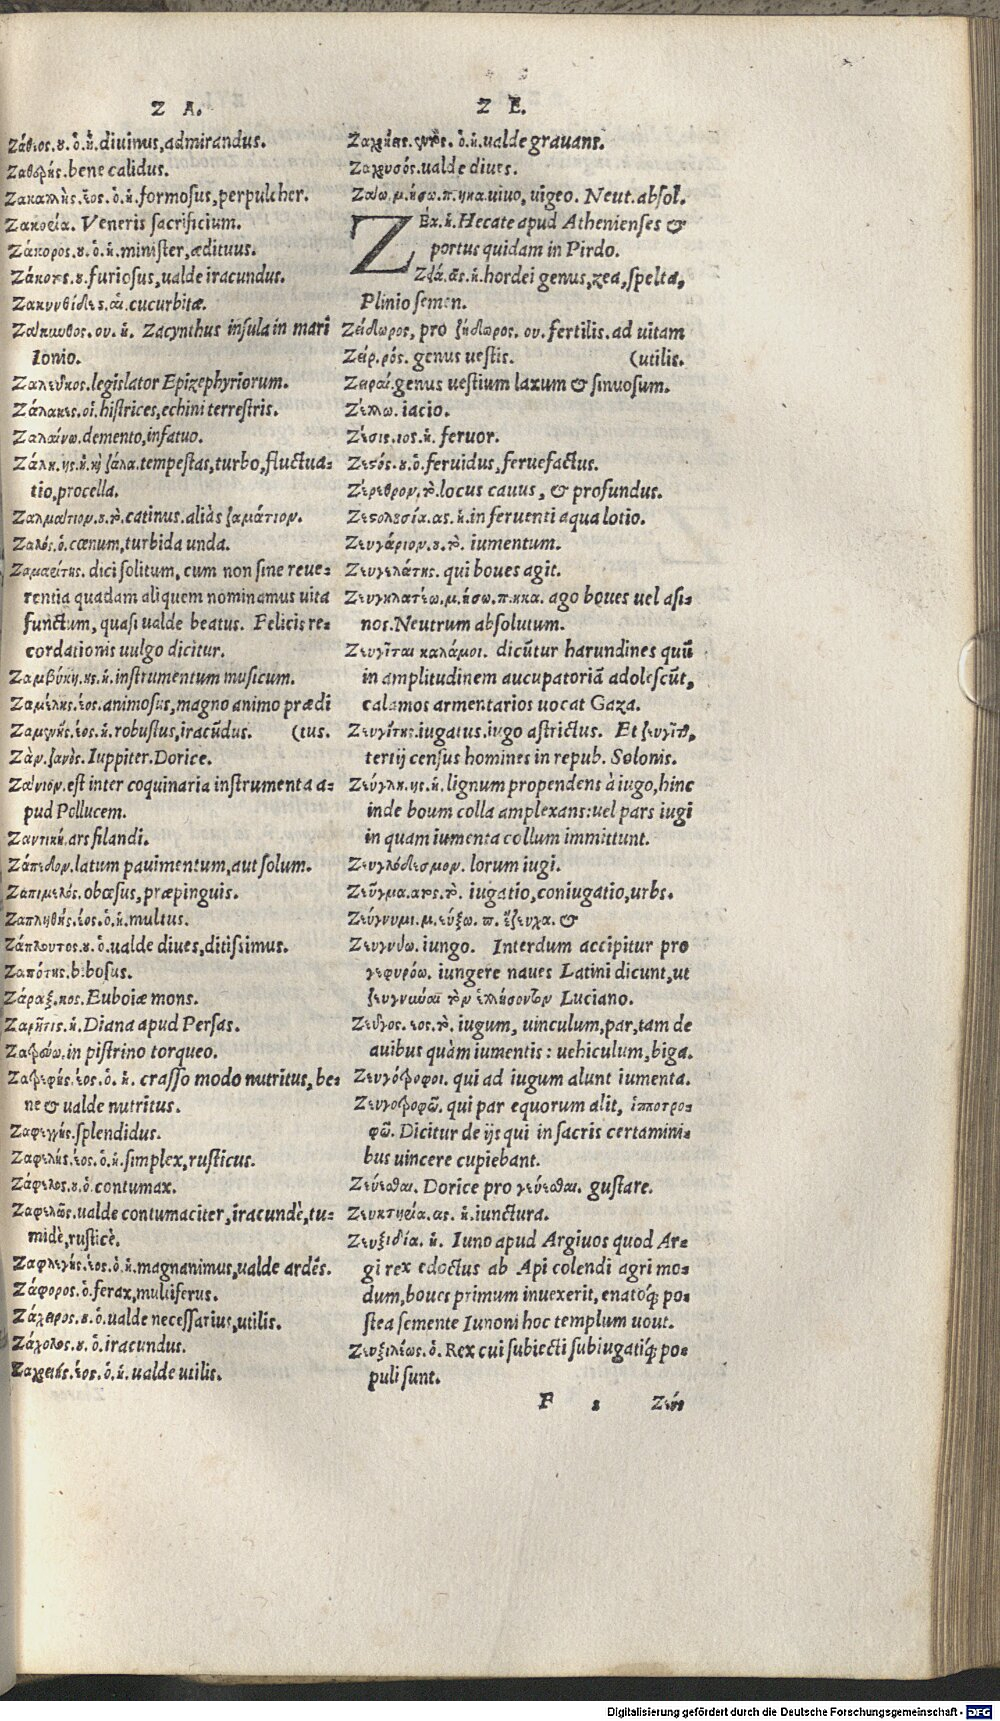 Z A.
Ζάθιος.ου.ὁ.ἡ.diuinus,admirandus.
Ζαθερὴς.bene calidus.
Ζακαλλὴς.έος.ὁ.ἡ.formosus,perpulcher.
Ζακορεία. Veneris sacrificium.
Ζάκορος.ου.ὁ.ἡ.minister,ædituus.
Ζάκοτος.ου.furiosus,ualde iracundus.
Ζακυνθίδες.αἱ.cucurbitæ.
Ζάκυνθος.ου.ἡ. Zacynthus insula in mari
Ionio.
Ζαλεῦκος.legislator Epizephyriorum.
Ζάλακες.οἱ.histrices,echini terrestris.
Ζαλαίνω.demento,infatuo.
Ζάλη.ης.ἡ.κὴ ζάλα.tempestas,turbo,fluctua=
tio,procella.
Ζαλμάτιον.ου.τὸ.catinus.aliàs ζαμάτιον.
Ζαλός.ὁ.cœnum,turbida unda.
Ζαμαρίτης. dici solitum, cum non sine reue=
rentia quadam aliquem nominamus uita
functum, quasi ualde beatus. Felicis re=
cordationis uulgo dicitur.
Ζαμβύκη.ης.ἡ.instrumentum musicum.
Ζαμελὴς.έος.animosus,magno animo prædi
Ζαμενής.έος.ἡ.robustus,iracūdus. (tus.
Ζὰν.ζανὸς.Iuppiter.Dorice.
Ζάνιον.est inter coquinaria instrumenta a=
pud Pollucem.
Ζαντική.ars filandi.
Ζάπεδον.latum pauimentum,aut solum.
Ζαπιμελός.obœsus,præpinguis.
Ζαπληθής.έος.ὁ.ἡ.multus.
Ζάπλουτος.ου.ὁ.ualde diues,ditissimus.
Ζαπότης.bibosus.
Ζάραξ.κος.Euboiæ mons.
Ζαρῆτις.ἡ.Diana apud Persas.
in pistrino torqueo.
Ζατρεφής.έος.ὁ.ἡ. crasso modo nutritus, be=
ne & ualde nutritus.
Ζαφεγγής.splendidus.
Ζαφελής.έος.ὁ.ἡ.simplex,rusticus.
Ζάφελος.ου.ὁ.contumax.
Ζαφελῶς.ualde contumaciter,iracundè,tu=
midè,rusticè.
Ζαφλεγής.έος.ὁ.ἡ.magnanimus,ualde ardēs.
Ζάφορος.ὁ.ferax,multiferus.
Ζάχρειος.ου.ὁ.ualde necessarius,utilis.
Ζάχολος.ου.ὁ.iracundus.
Ζαχρειής.έος.ὁ.ἡ.ualde utilis.
Z E.
ὁ.ἡ.ualde grauans.
Ζαχρυσός.ualde diues.
Ζάω.μ.ήσω.π.ηκα.uiuo, uigeo. Neut.absol.
ΖΕα.ἡ.Hecate apud Athenienses &
portus quidam in Pirdo.
Ζεά.ᾶς.ἡ.hordei genus,zea,spelta,
Plinio semen.
Ζείδωρος, pro ζήδωρος. ου. fertilis.ad uitam
Ζείρ.ρός. genus uestis. (utilis.
Ζειραί.genus uestium laxum & sinuosum.
Ζέλλω. iacio.
Ζέσις.ιος.ἡ. feruor.
Ζεστός.ου.ὁ.feruidus,feruefactus.
Ζέρεθρον.τὸ.locus cauus, & profundus.
Ζεστολουσία.ας.ἡ.in feruenti aqua lotio.
Ζευγάριον.ου.τὸ. iumentum.
Ζευγελάτης. qui boues agit.
Ζευγηλατέω.μ.ήσω.π.ηκα. ago boues uel asi=
nos.Neutrum absolutum.
Ζευγῖται καλάμοι. dicūtur harundines quū
in amplitudinem aucupatoriā adolescūt,
calamos armentarios uocat Gaza.
Ζευγίτης.iugatus.iugo astrictus. Et ζευγῖται,
tertij census homines in repub. Solonis.
Ζεύγλη.ης.ἡ.lignum propendens à iugo,hinc
inde boum colla amplexans:uel pars iugi
in quam iumenta collum immittunt.
Ζευγλόδεσμον. lorum iugi.
Ζεῦγμα.ατος.τὸ. iugatio,coniugatio,urbs.
Ζεύγνυμι.μ.εύξω. π. ἔζευχα. &
Ζευγνύω.iungo. Interdum accipitur pro
γεφυρόω. iungere naues Latini dicunt,ut
ζευγνῦναι τὸν ἑλλήσποντον Luciano.
Ζεῦγος.εος.τὸ. iugum, uinculum,par,tam de
auibus quàm iumentis : uehiculum,biga.
Ζευγότροφοι. qui ad iugum alunt iumenta.
Ζευγοτροφῶ. qui par equorum alit, ἱπποτρο=
φῶ. Dicitur de ijs qui in sacris certamini=
bus uincere cupiebant.
Ζεύεσθαι. Dorice pro γεύεσθαι. gustare.
Ζευκτηεία.ας. ἡ.iunctura.
Ζευξιδία. ἡ. Iuno apud Argiuos quod Ar=
gi rex edoctus ab Api colendi agri mo=
dum,boues primum inuexerit, enatoq́; po=
stea semente Iunoni hoc templum uout.
Ζευξιλέως. ὁ. Rex cui subiecti subiugatiq́; po=
puli sunt.
F 2 Ζεύς
Digitalisierung gefördert durch die Deutsche Forschungsgemeinschaft - DFG